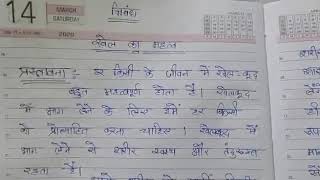 14 MARCH
SATURDAY
2020
निबंध
खेल का महत्व
प्रस्तावना :- हर किसी के जीवन में खेल-कूद
बहुत महत्वपूर्ण होता है। खेलकूद
में भाग लेने के लिए हमें हर किसी
को प्रोत्साहित करना चाहिए। खेलकूद में
भाग लेने से शरीर स्वस्थ और तंदुरुस्त
रहता है।